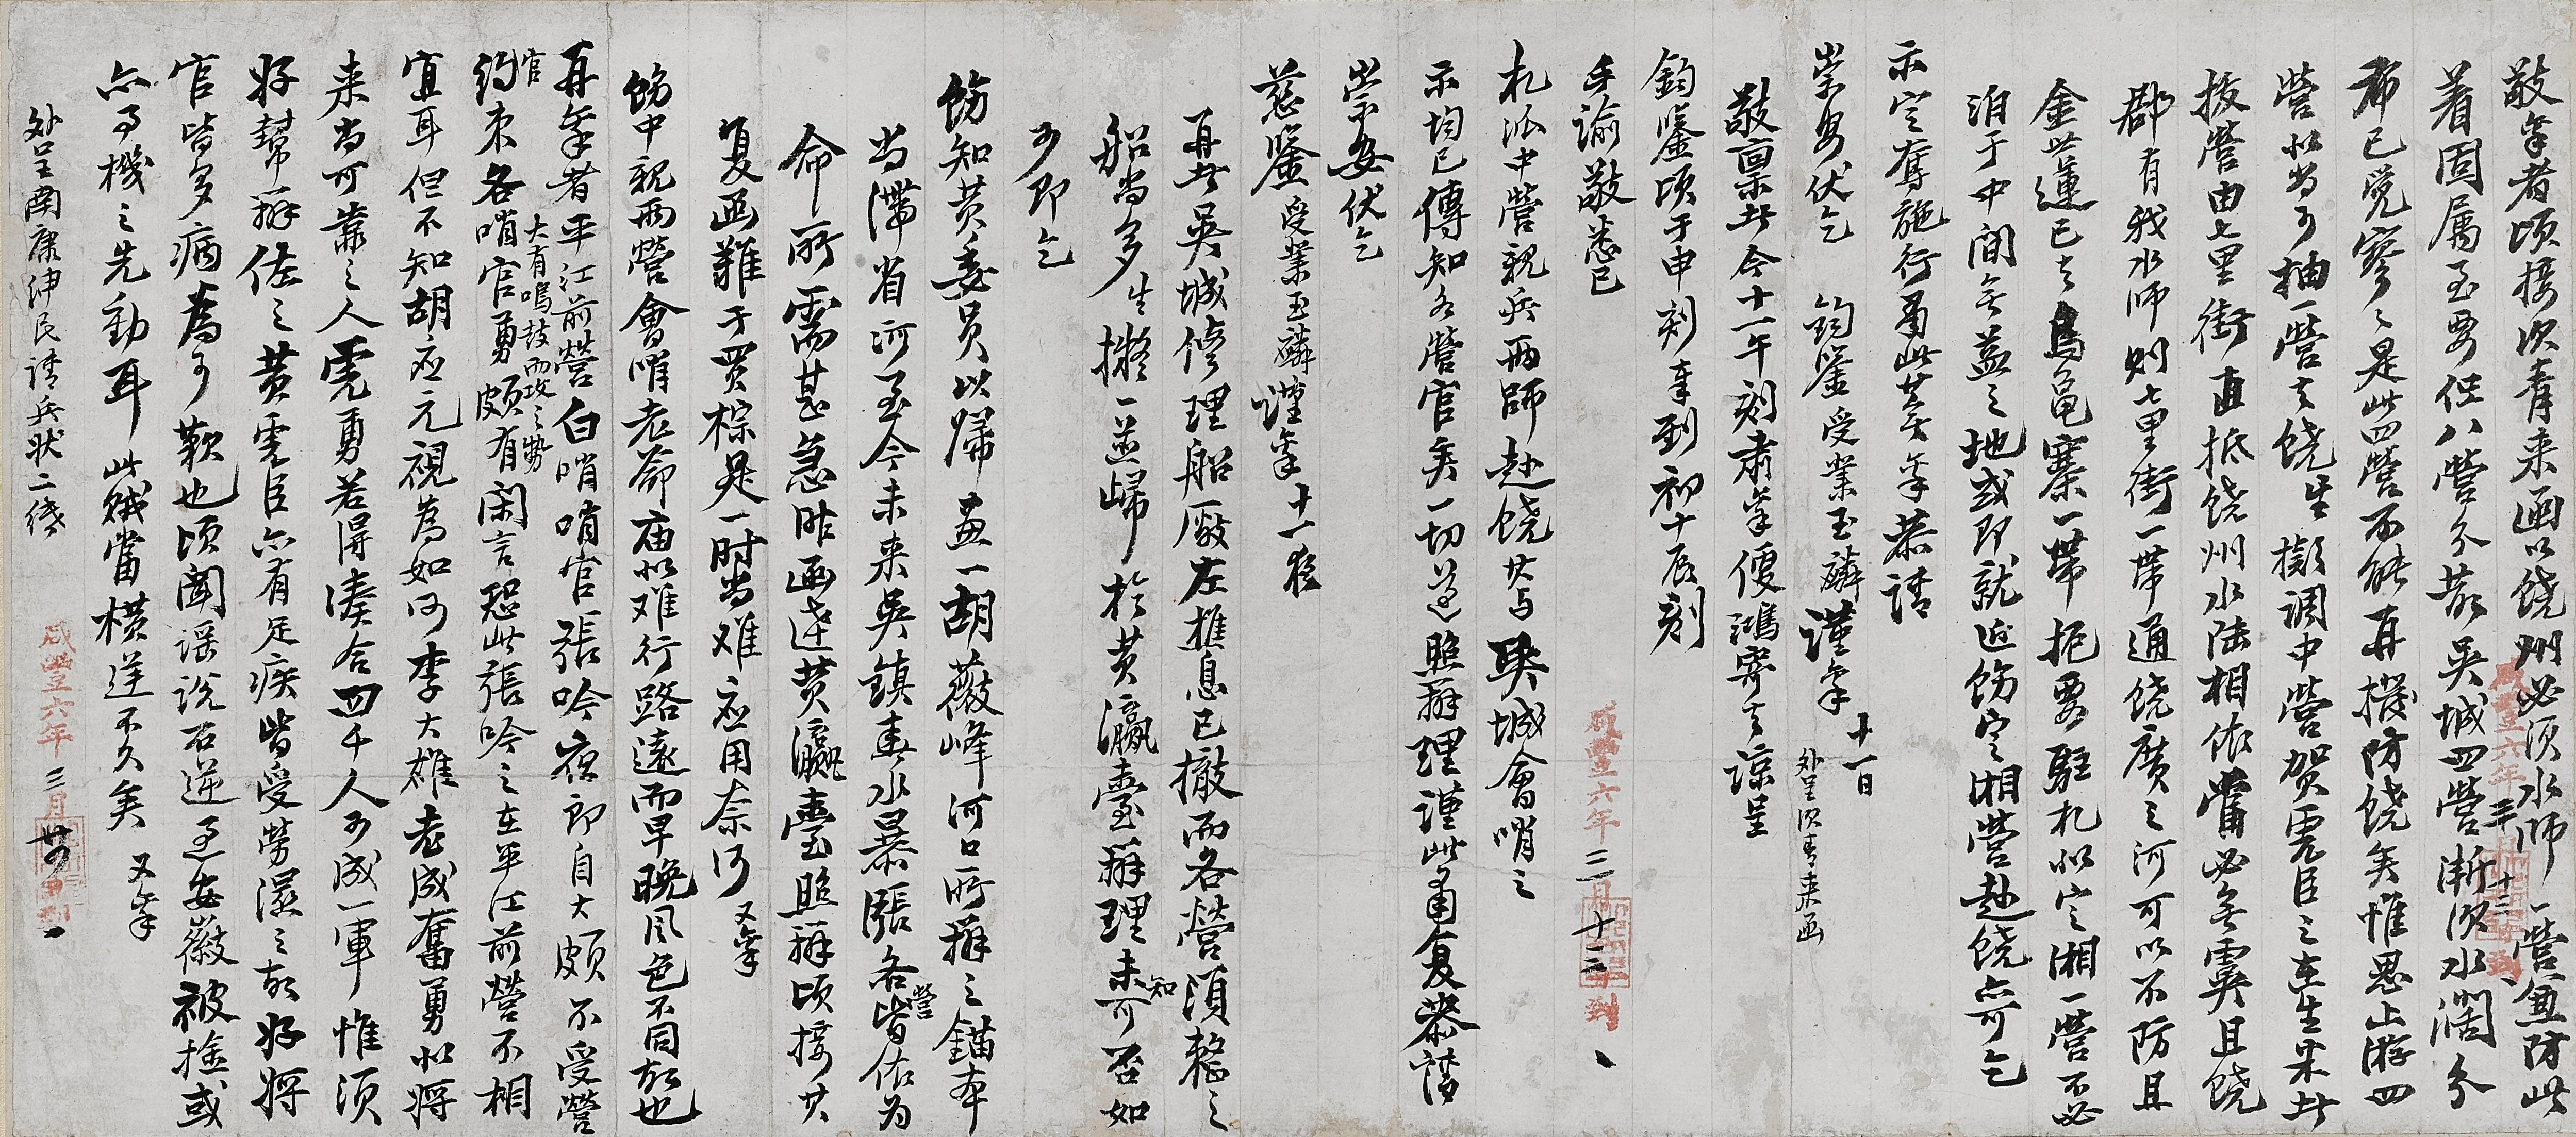 敬稟者頃接次青來函以饒州必須水師一營兼防此
着固屬至要但八營分散吳城四營漸次水濶分
布已覺寥寥是此四營不能再撥防饒矣惟思上游四
營似當可抽一營去饒生擬調中營賀虎臣之在生宋此
拔營由七里街直抵饒州水陸相依當必無虞且饒
郡有我水師則七里街一帶通饒廣之河可以不防且
金世蓮已去烏龜寨一帶扼要駐札似定湘一營不必
泊于中間無益之地或即就近飭定湘營赴饒亦可乞
示定奪施行肅此芸稟恭請
崇安伏乞 鈞鑒受業玉麟謹稟 十一日
外呈次青來函
敬稟者今十一午刻肅稟便鴻寄去諒呈
鈞鑒頃于申刻奉到初十辰刻
手諭敬悉已
咸豐六年三月十二日到
札派中營親兵兩師赴饒其與吳城會哨之
示均已傳知各營官矣一切遵照辦理謹此肅复恭請
崇安伏乞
慈鑒受業玉麟謹稟十一夜
再者吳城修理船廠左樵息已撤而各營須整之
船尚多生擬一並歸於黃瀛臺辦理未知可否如
可即乞
飭知黃委員以歸畫一胡薇峰河口所辦之錨本
當滯省河至今未來吳鎮春水暴漲各營皆依为
命所需甚急昨函達黃瀛臺照辦頃接其
复函難于買棕是一时尚难应用奈何 又稟
飭中親兩營會哨老爺庙似难行路遠而早晚风色不同故也
再稟者平江前營白哨哨官張吟夜郎自大頗不受營
官約束各哨官勇頗有閑言恐此張吟之在平江前營不相
大有鳴鼓而攻之勢
宜耳但不知胡应元視為如何李大雄老成奮勇似將
来尚可靠之人虎勇若得湊合四千人可成一軍惟須
好幫辦佐之黃虎臣亦有足疾皆受勞濕之故好將
官皆多病為可歎也頃聞谣說石逆至安徽被擒或
亦予機之先動耳此賊當横逆不久矣 又稟
外呈南康紳民請兵狀二紙
咸豐六年三月廿日到